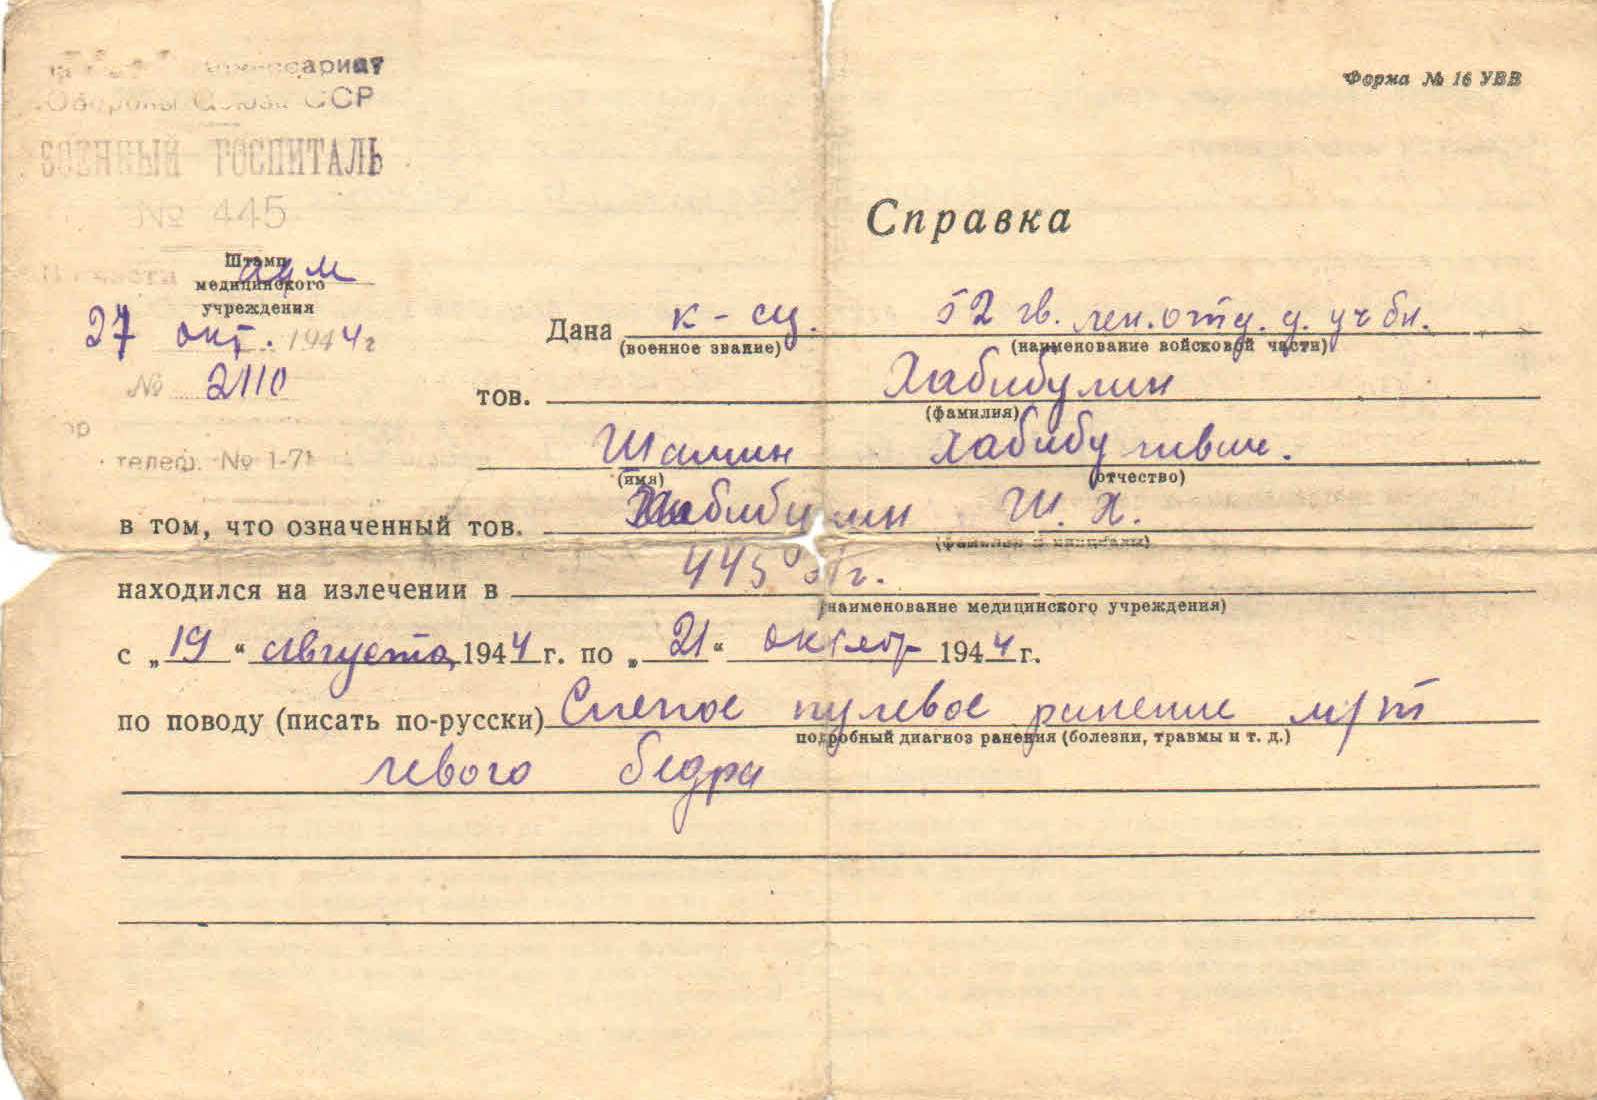 Комиссариат
Обороны Союза ССР
ВОЕННЫЙ ГОСПИТАЛЬ
№ 445
Форма № 16 УВВ
Справка
Штамп
части
медицинского
учреждения
27 окт. 1944г
№ 2110
телеф. № 1-71
Дана к-сц. 52 гв. лен. отд. д. уч бн.
(военное звание) (наименование войсковой части)
тов. Хабибулин
(фамилия)
Шамин Хабибуливич.
(имя) (отчество)
в том, что означенный тов. Хабибулин Ш. Х.
(фамилия и инициалы)
находился на излечении в 445 г.
(наименование медицинского учреждения)
с „19“ августа 1944 г. по „21“ октябр 1944 г.
по поводу (писать по-русски) Слепое пулевое ранение м/т
подробный диагноз ранения (болезни, травмы и т. д.)
левого бедра